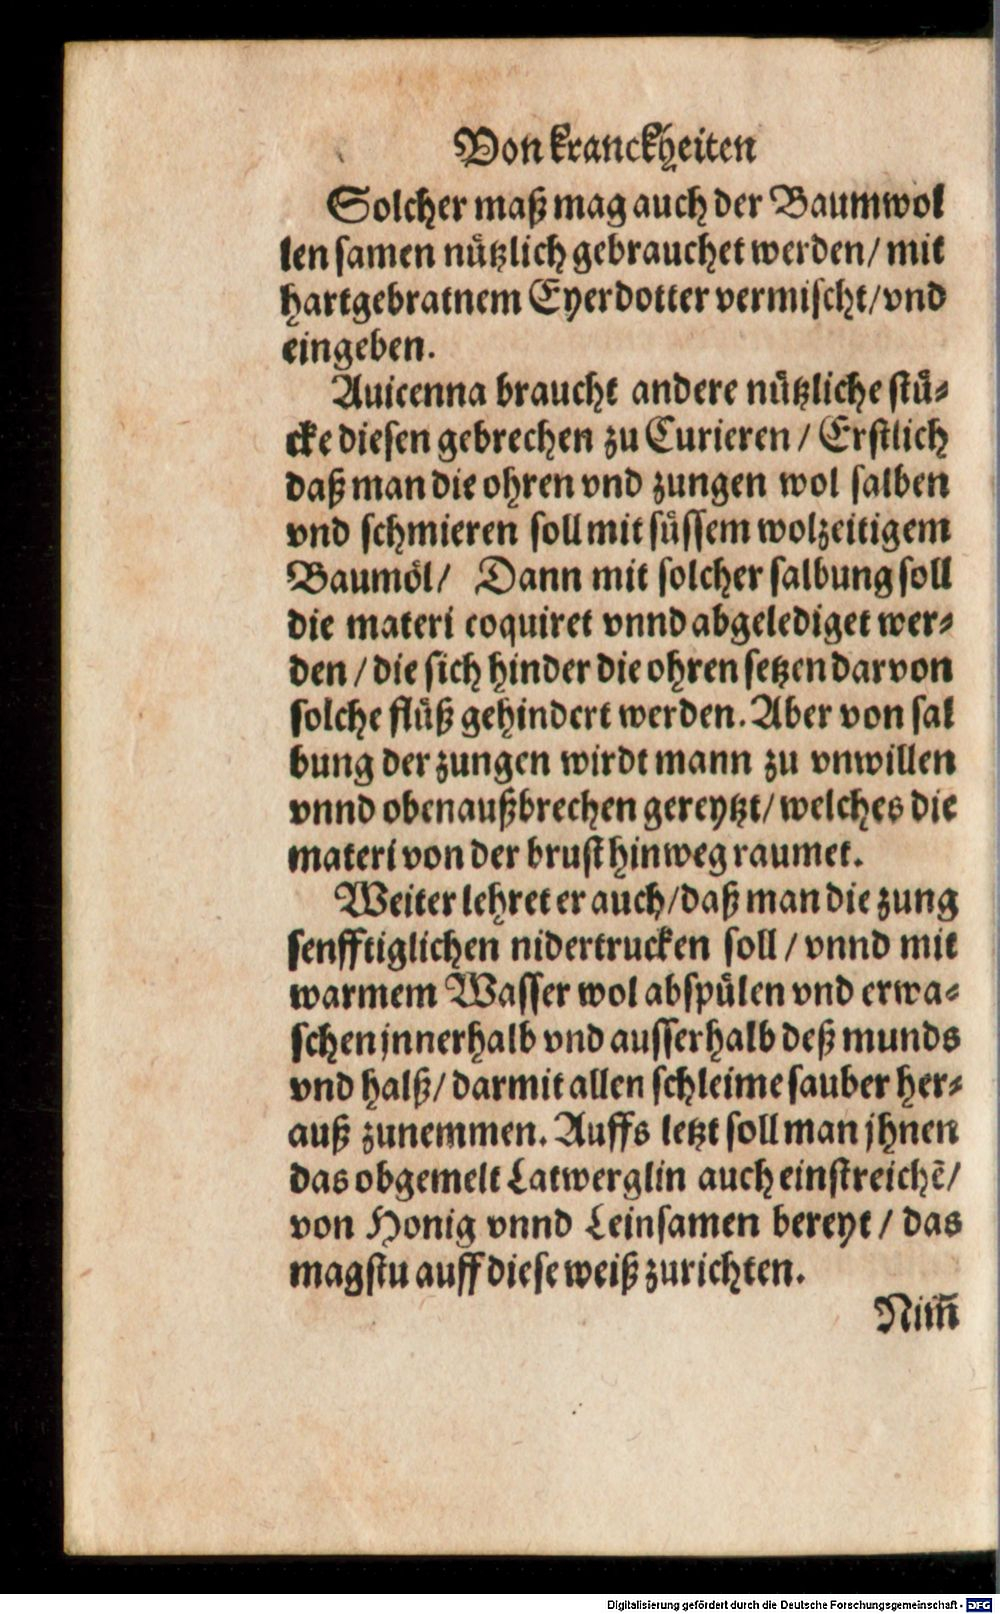 Von kranckheiten
Solcher maß mag auch der Baumwol
len samen nützlich gebrauchet werden/ mit
hartgebratnem Eyerdotter vermischt/ vnd
eingeben.
Auicenna braucht andere nützliche stü-
cke diesen gebrechen zu Curieren / Erstlich
daß man die ohren vnd zungen wol salben
vnd schmieren soll mit süssem wolzeitigem
Baumöl/ Dann mit solcher salbung soll
die materi coquiret vnnd abgelediget wer-
den / die sich hinder die ohren setzen darvon
solche flüß gehindert werden. Aber von sal
bung der zungen wirdt mann zu vnwillen
vnnd obenaußbrechen gereytzt/ welches die
materi von der brust hinweg raumet.
Weiter lehret er auch/ daß man die zung
senfftiglichen nidertrucken soll / vnnd mit
warmem Wasser wol abspülen vnd erwa-
schen jnnerhalb vnd ausserhalb deß munds
vnd halß/ darmit allen schleime sauber her-
auß zunemmen. Auffs letzt soll man jhnen
das obgemelt Latwerglin auch einstreichē/
von Honig vnnd Leinsamen bereyt / das
magstu auff diese weiß zurichten.
Nim̄
Digitalisierung gefördert durch die Deutsche Forschungsgemeinschaft - DFG